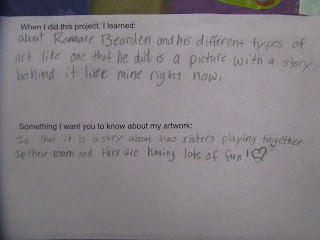 When I did this project, I learned:
about Romare Bearden and his different types of
art like one that he did is a picture with a story
behind it like mine right now.
Something I want you to know about my artwork:
Is that it is a story about two sisters playing together
In their room and they are having lots of fun!